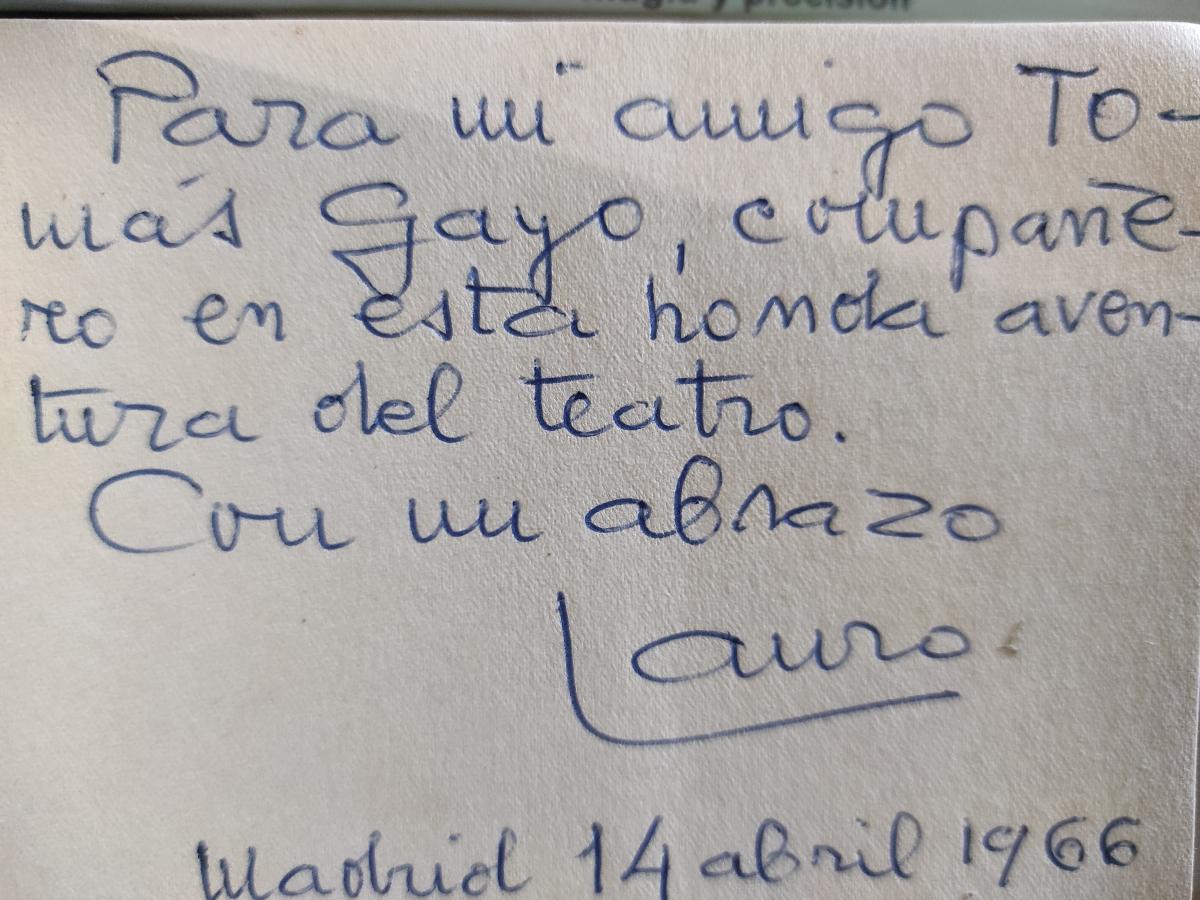 magia y precisión
Para mi amigo To-
más Gayo, compañe-
ro en esta honda aven-
tura del teatro.
Con un abrazo
Lauro.
Madrid 14 abril 1966